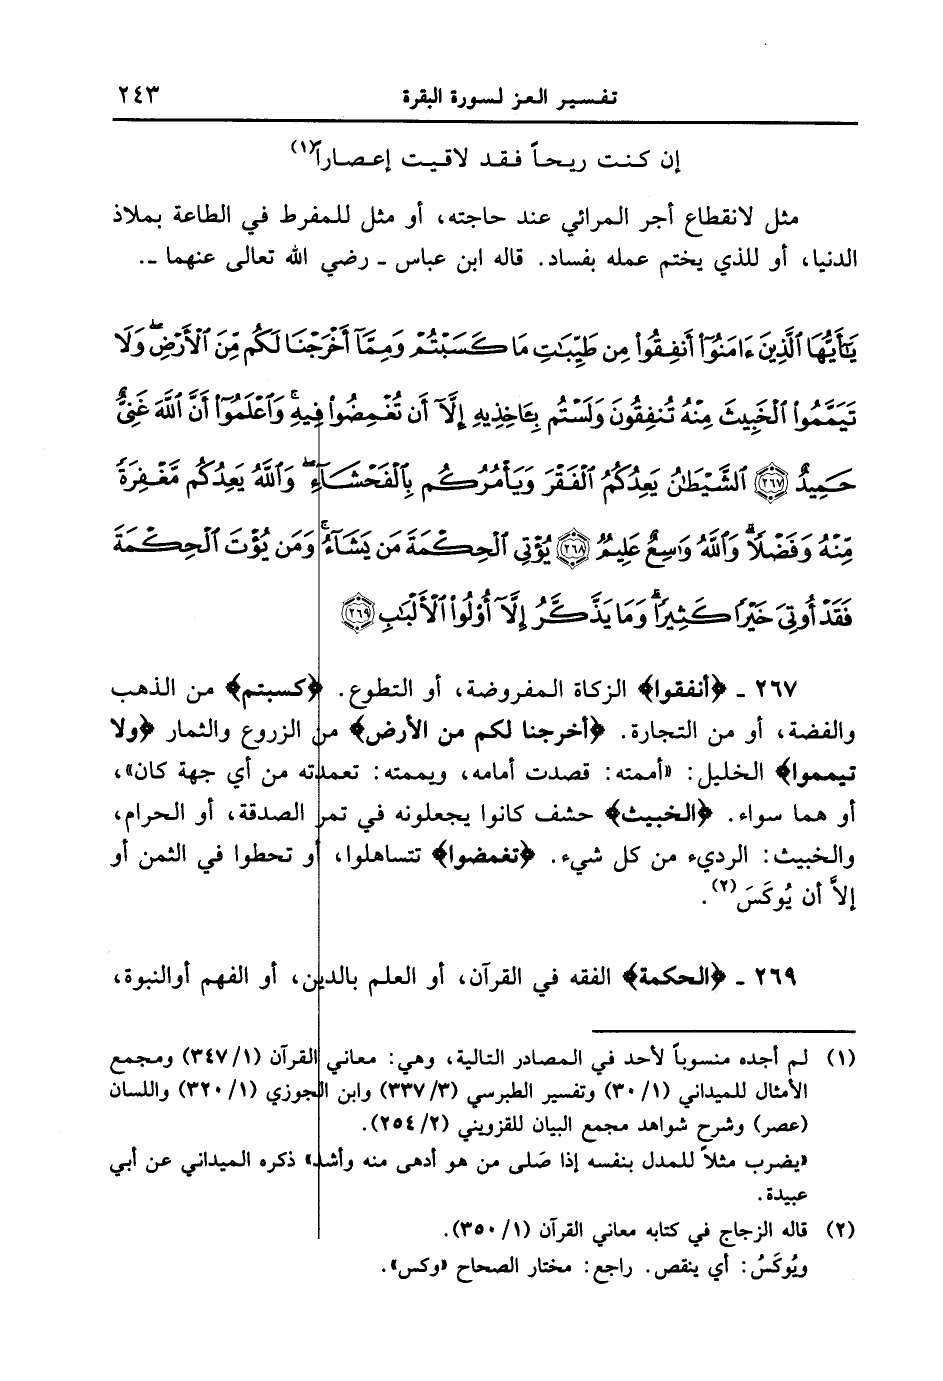 تفسير العز لسورة البقرة ٢٤٣
إن كنت ريحاً فقد لاقيت إعصاراً(١)
مثل لانقطاع أجر المرائي عند حاجته، أو مثل للمفرط في الطاعة بملاذ
الدنيا، أو للذي يختم عمله بفساد. قاله ابن عباس ـ رضي الله تعالى عنهما ـ.
يَٰٓأَيُّهَا ٱلَّذِينَ ءَامَنُوٓا۟ أَنفِقُوا۟ مِن طَيِّبَٰتِ مَا كَسَبْتُمْ وَمِمَّآ أَخْرَجْنَا لَكُم مِّنَ ٱلْأَرْضِ ۖ وَلَا
تَيَمَّمُوا۟ ٱلْخَبِيثَ مِنْهُ تُنفِقُونَ وَلَسْتُم بِـَٔاخِذِيهِ إِلَّآ أَن تُغْمِضُوا۟ فِيهِ ۚ وَٱعْلَمُوٓا۟ أَنَّ ٱللَّهَ غَنِىٌّ
حَمِيدٌ ٢٦٧ ٱلشَّيْطَٰنُ يَعِدُكُمُ ٱلْفَقْرَ وَيَأْمُرُكُم بِٱلْفَحْشَآءِ ۖ وَٱللَّهُ يَعِدُكُم مَّغْفِرَةً
مِّنْهُ وَفَضْلًا ۗ وَٱللَّهُ وَٰسِعٌ عَلِيمٌ ٢٦٨ يُؤْتِى ٱلْحِكْمَةَ مَن يَشَآءُ ۚ وَمَن يُؤْتَ ٱلْحِكْمَةَ
فَقَدْ أُوتِىَ خَيْرًا كَثِيرًا ۗ وَمَا يَذَّكَّرُ إِلَّآ أُو۟لُوا۟ ٱلْأَلْبَٰبِ ٢٦٩
٢٦٧ ـ ﴿أنفقوا﴾ الزكاة المفروضة، أو التطوع. ﴿كسبتم﴾ من الذهب
والفضة، أو من التجارة. ﴿أخرجنا لكم من الأرض﴾ من الزروع والثمار ﴿ولا
تيمموا﴾ الخليل: «أممته: قصدت أمامه، ويممته: تعمدته من أي جهة كان»،
أو هما سواء. ﴿الخبيث﴾ حشف كانوا يجعلونه في تمر الصدقة، أو الحرام،
والخبيث: الرديء من كل شيء. ﴿تغمضوا﴾ تتساهلوا، أو تحطوا في الثمن أو
إلاَّ أن يُوكَسَ(٢).
٢٦٩ ـ ﴿الحكمة﴾ الفقه في القرآن، أو العلم بالدين، أو الفهم أوالنبوة،
(١) لم أجده منسوباً لأحد في المصادر التالية، وهي: معاني القرآن (١/ ٣٤٧) ومجمع
الأمثال للميداني (١/ ٣٠) وتفسير الطبرسي (٣/ ٣٣٧) وابن الجوزي (١/ ٣٢٠) واللسان
(عصر) وشرح شواهد مجمع البيان للقزويني (٢/ ٢٥٤).
«يضرب مثلاً للمدل بنفسه إذا صَلى من هو أدهى منه وأشد» ذكره الميداني عن أبي
عبيدة.
(٢) قاله الزجاج في كتابه معاني القرآن (١/ ٣٥٠).
ويُوكَسُ: أي ينقص. راجع: مختار الصحاح «وكس».